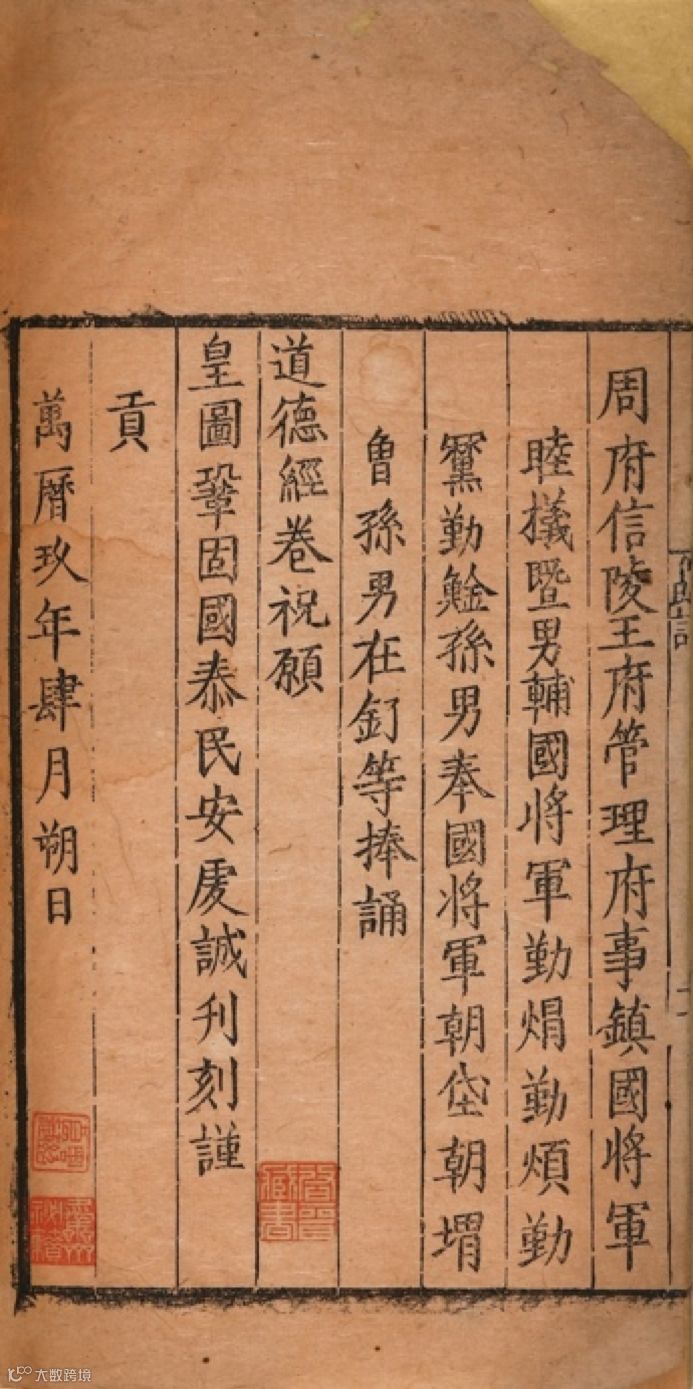 周府信陵王府管理府事鎮國將軍
睦㰘暨男輔國將軍勤焆勤煩勤
勤孫男奉國將軍朝垈朝堳
曾孫男在釘等捧誦
道德經卷祝願
皇圖鞏固國泰民安虔誠刋刻謹
貢
萬曆玖年肆月朔日
大数跨境